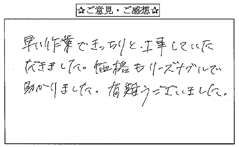 ☆ご意見・ご感想☆
早い作業できっちりと工事していた
だきました。価格もリーズナブルで
助かりました。有難うございました。